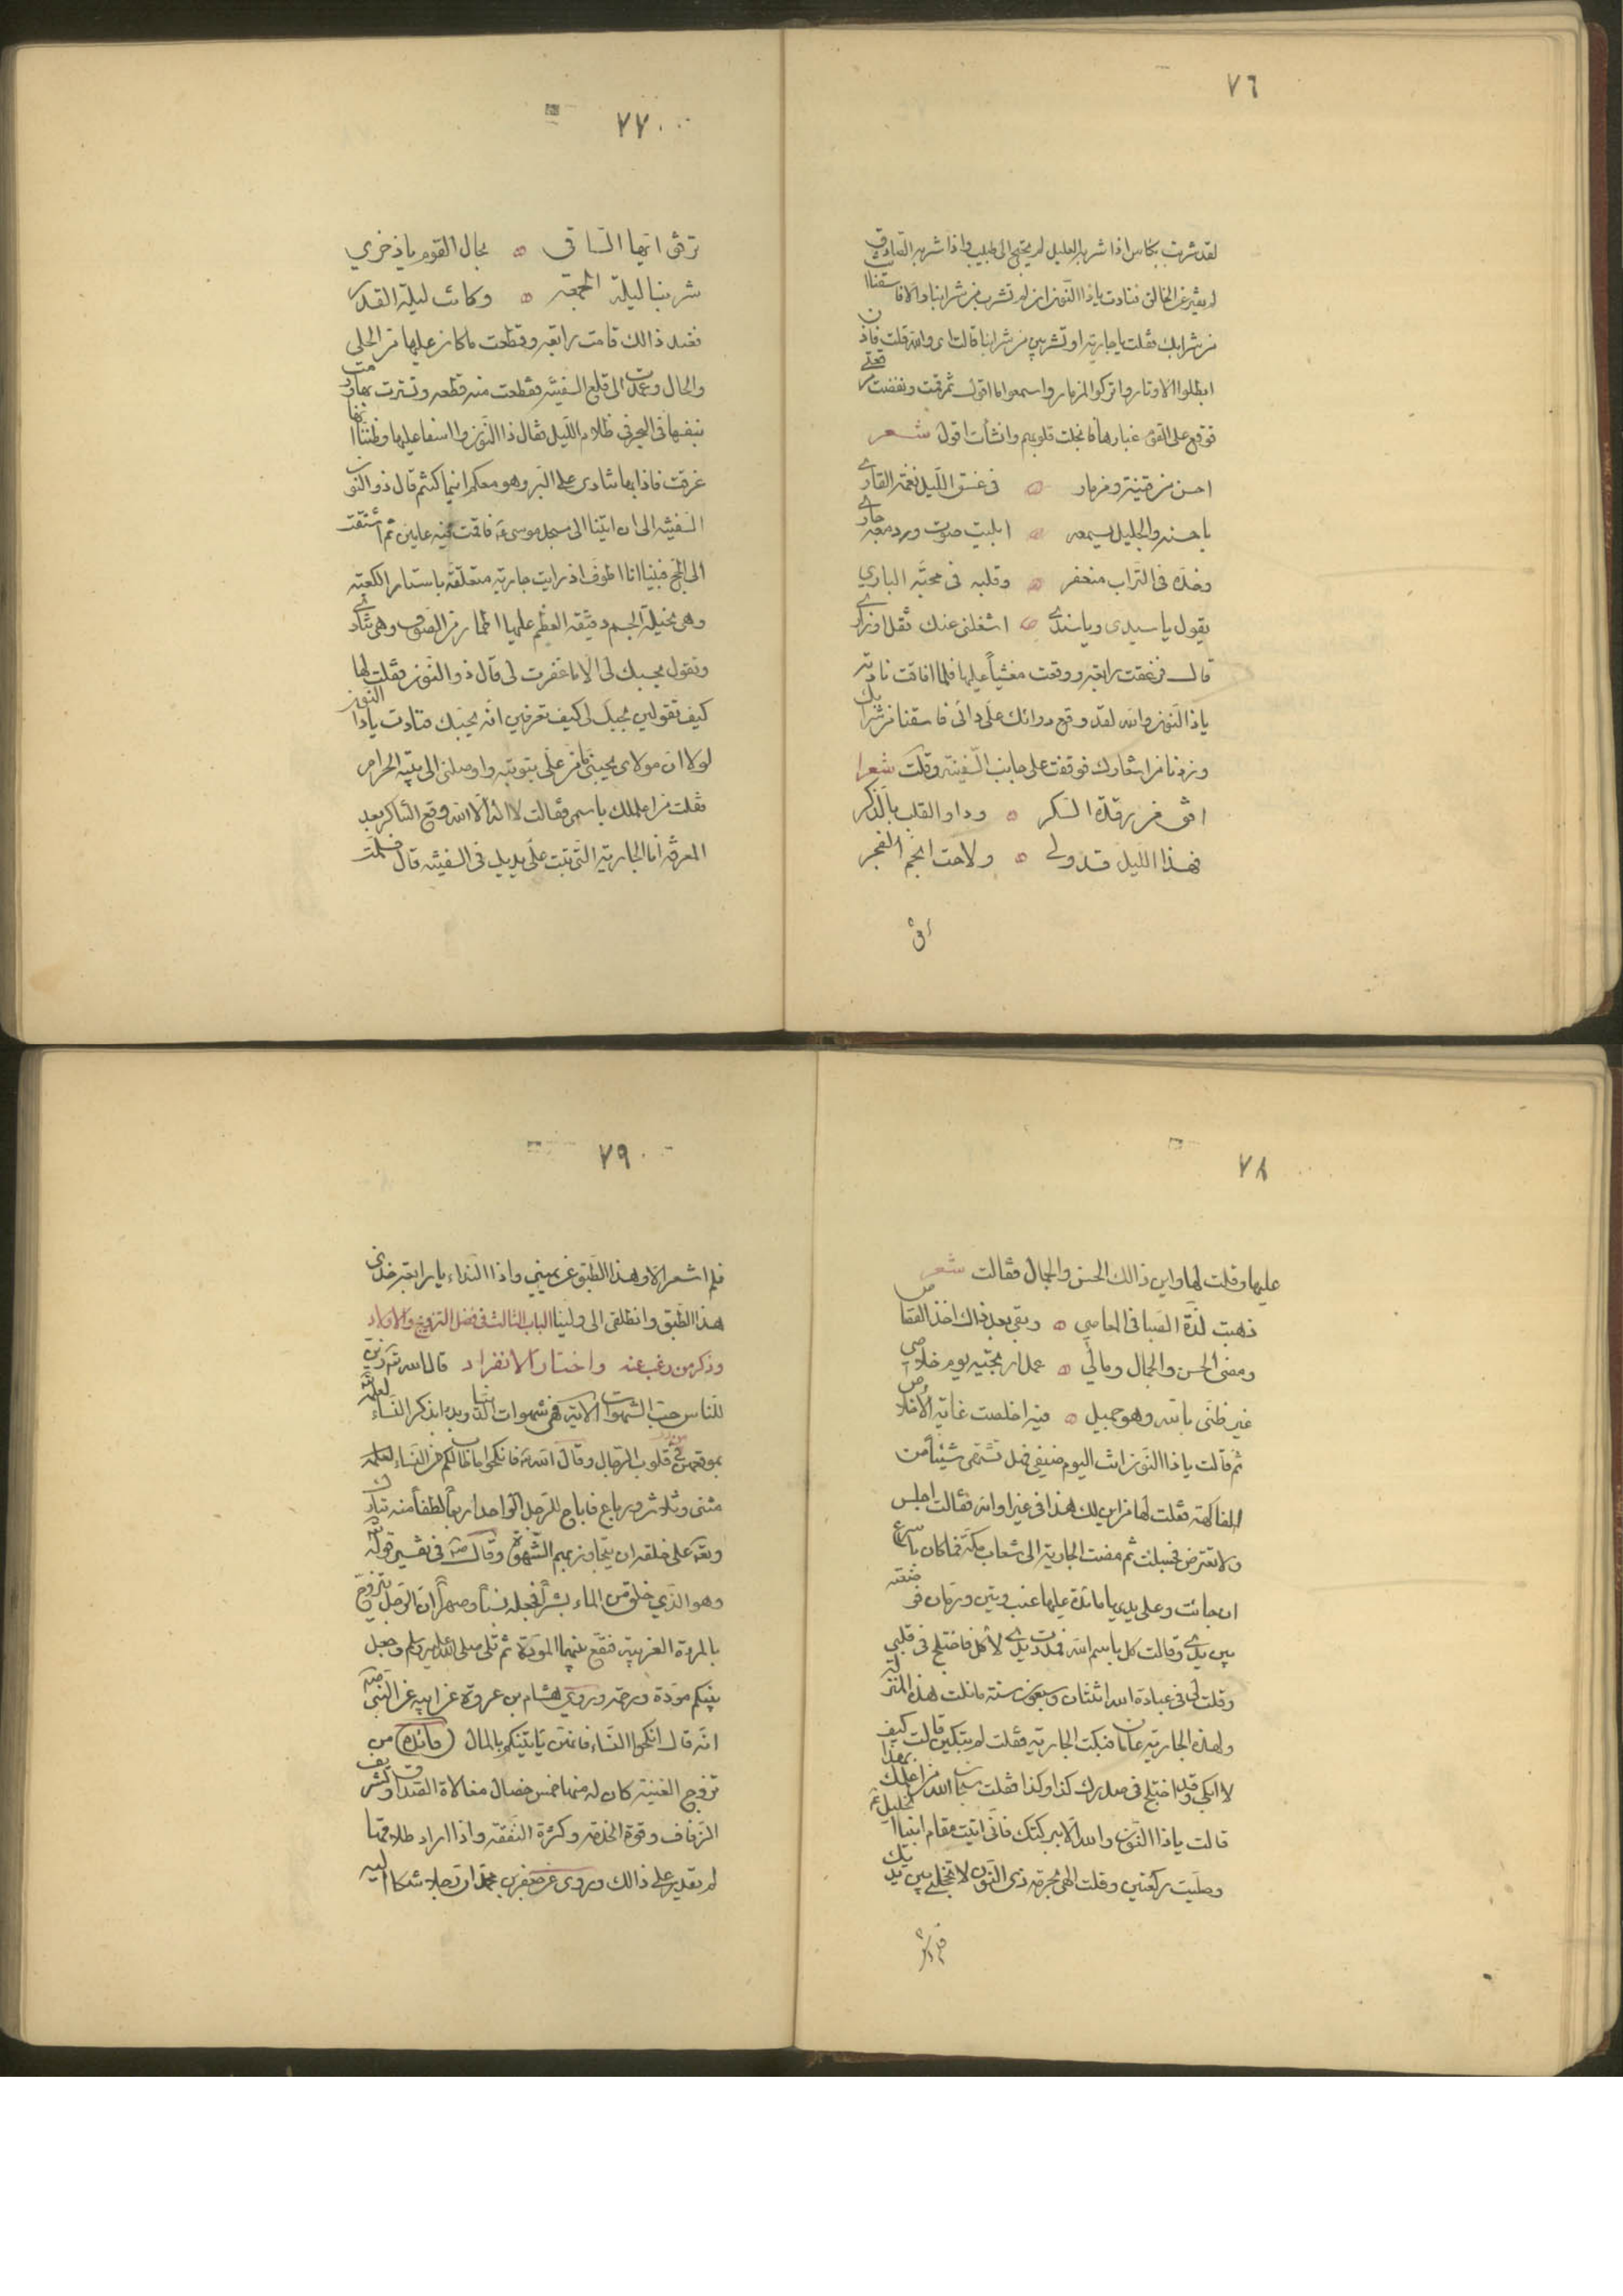 ٧٦
لقد شربت بكأس اذا شربه العليل لم يحتج الى طبيب واذا شربه الصادق
لم يغير عن الخالق فنادت ياذا النون ان لم تشرب من شرابنا والا فاسقنا
من شرابك فقلت يا جارية او تشربين من شرابنا قالت اى والله قلت فاذن
ابطلوا الاوتار واتركوا المزمار واسمعوا ما اقول ثم قمت ونفضت
فوقع على القوم غبارها فانجلت قلوبهم وانشأت اقول شعر
احسن من قينة ومزمار ۞ فى غسق الليل نغمة القارى
يا حسنه والجليل يسمعه ۞ ابليت صوت ودمعه جارى
وخده فى التراب منعفر ۞ وقلبه فى محبة الباري
يقول يا سيدى ويا سندى ۞ اشغلنى عنك ثقل اوزارى
قال فزعقت رابعه ووقعت مغشياً عليها فلما افاقت نادت
ياذا النون والله لقد وقع دوائك على دائى فاسقنا من شرابك
وزدنا من اشعارك فوقفت على جانب السفينة وقلت شعرا
افق من رقدة السكر ۞ وداو القلب بالذكر
فهذا الليل قد ولى ۞ ولاحت انجم الفجر
٧٧
ترفق ايها الساقى ۞ بحال القوم ياذخري
شربنا ليلة الجمعة ۞ وكانت ليلة القدر
فعند ذالك قامت رابعه وقطعت ما كان عليها من الحلى
والحال وعمدت الى قلع السفينه فقطعت منه قطعه وتسترت بها ورمت
بنفسها فى البحر فى ظلام الليل فقال ذا النون وا اسفا عليها وظننا انها
غرقت فاذا بها تنادى على البر وهو معكم اينما كنتم قال ذو النون
السفينه الى ان اتينا الى مسجد موسى ع فاقمت فيه عامين ثم اشتقت
الى الحج فبينا انا اطوف اذ رايت جارية متعلقة باستار الكعبة
وهى نحيلة الجسم دقيقة العظم عليها اطمار من الصوف وهى تنادى
وتقول بحبك لى الا ما غفرت لى قال ذو النون فقلت لها
كيف تقولين بحبك لى كيف تعرفين انه يحبك فنادت ياذا النون
لولا ان مولاى يحبنى ما من على بتوبته واوصلنى الى بيته الحرام
فقلت من اعلمك باسمى فقالت لا اله الا الله وقع التناكر بعد
المعرفه انا الجارية التى تبت على يديك فى السفينه قال فسلمت
٧٨
عليها وقلت لها واين ذالك الحسن والجمال فقالت شعر
ذهبت لذة الصبا فى المعاصي ۞ وبقى بعد ذاك اخذ القصاص
ومضى الحسن والجمال ومالي ۞ عمل ارتجيه يوم خلاصى
غير ظنى بالله وهو جميل ۞ فيه اخلصت غاية الاخلاص
ثم قالت ياذا النون انت اليوم ضيفى فهل تشتهى شيئاً من
الفاكهة فقلت لها من اين لك هذا فى غير اوانه فقالت اجلس
ولا تعترض فجلست ثم مضت الجارية الى شعاب مكة فما كان باسرع
ان جائت وعلى يديها مائدة عليها عنب وتين ورمان فوضعته
بين يدى وقالت كل باسم الله فمددت يدى لأكل فاختلج فى قلبي
وقلت لى فى عبادة الله اثنتان وسبعون سنه ما نلت هذه المنزلة
ولهذه الجارية عامان فبكت الجارية فقلت لم تبكين قالت كيف
لا ابكى وقد اختلج فى صدرك كذا وكذا فقلت سبحان الله من اعلمك بهذا
قالت ياذا النون والله الا ببركتك فانى اتيت مقام ابينا الخليل ع
وصليت ركعتين وقلت الهى بحرمة ذى النون لا تخجلنى بين يديك
٧٩
فلم اشعر الا وهذا الطبق عن يميني واذا النداء يا رابعه خذى
هذا الطبق وانطلقى الى ولينا الباب الثالث فى فضل التزويج والاولاد
وذكر من رغب عنه واختار الانفراد قال الله تعالى زين
للناس حب الشهوات الاية فهى شهوات الدنيا وبدا بذكر النساء لعلمه
بموقعهن من قلوب الرجال وقال الله تعالى فانكحوا ما طاب لكم من النساء
مثنى وثلاث ورباع فاباح للرجل الواحد اربعاً لطفاً منه تبارك
وتعالى على خلقه ان يتجاوز بهم الشهوة وقال فى تفسير قوله
وهو الذي خلق من الماء بشراً فجعله نسباً وصهراً ان الرجل يتزوج
بالمرءة الغريبة فتقع بينهما المودة ثم تلى صلى الله عليه وسلم وجعل
بينكم مودة ورحمة وروي هشام بن عروة عن ابيه عن النبى
انه قال انكحوا النساء فانهن ياتينكم بالمال (فائدة) من
تزوج الغنية كان له منها خمس خصال مغالاة الصداق وتسويف
الزفاف وقوة الخدمة وكثرة النفقة واذا اراد طلاقها
لم يقدر على ذالك وروى عن جعفر بن محمد ان رجلا شكا اليه